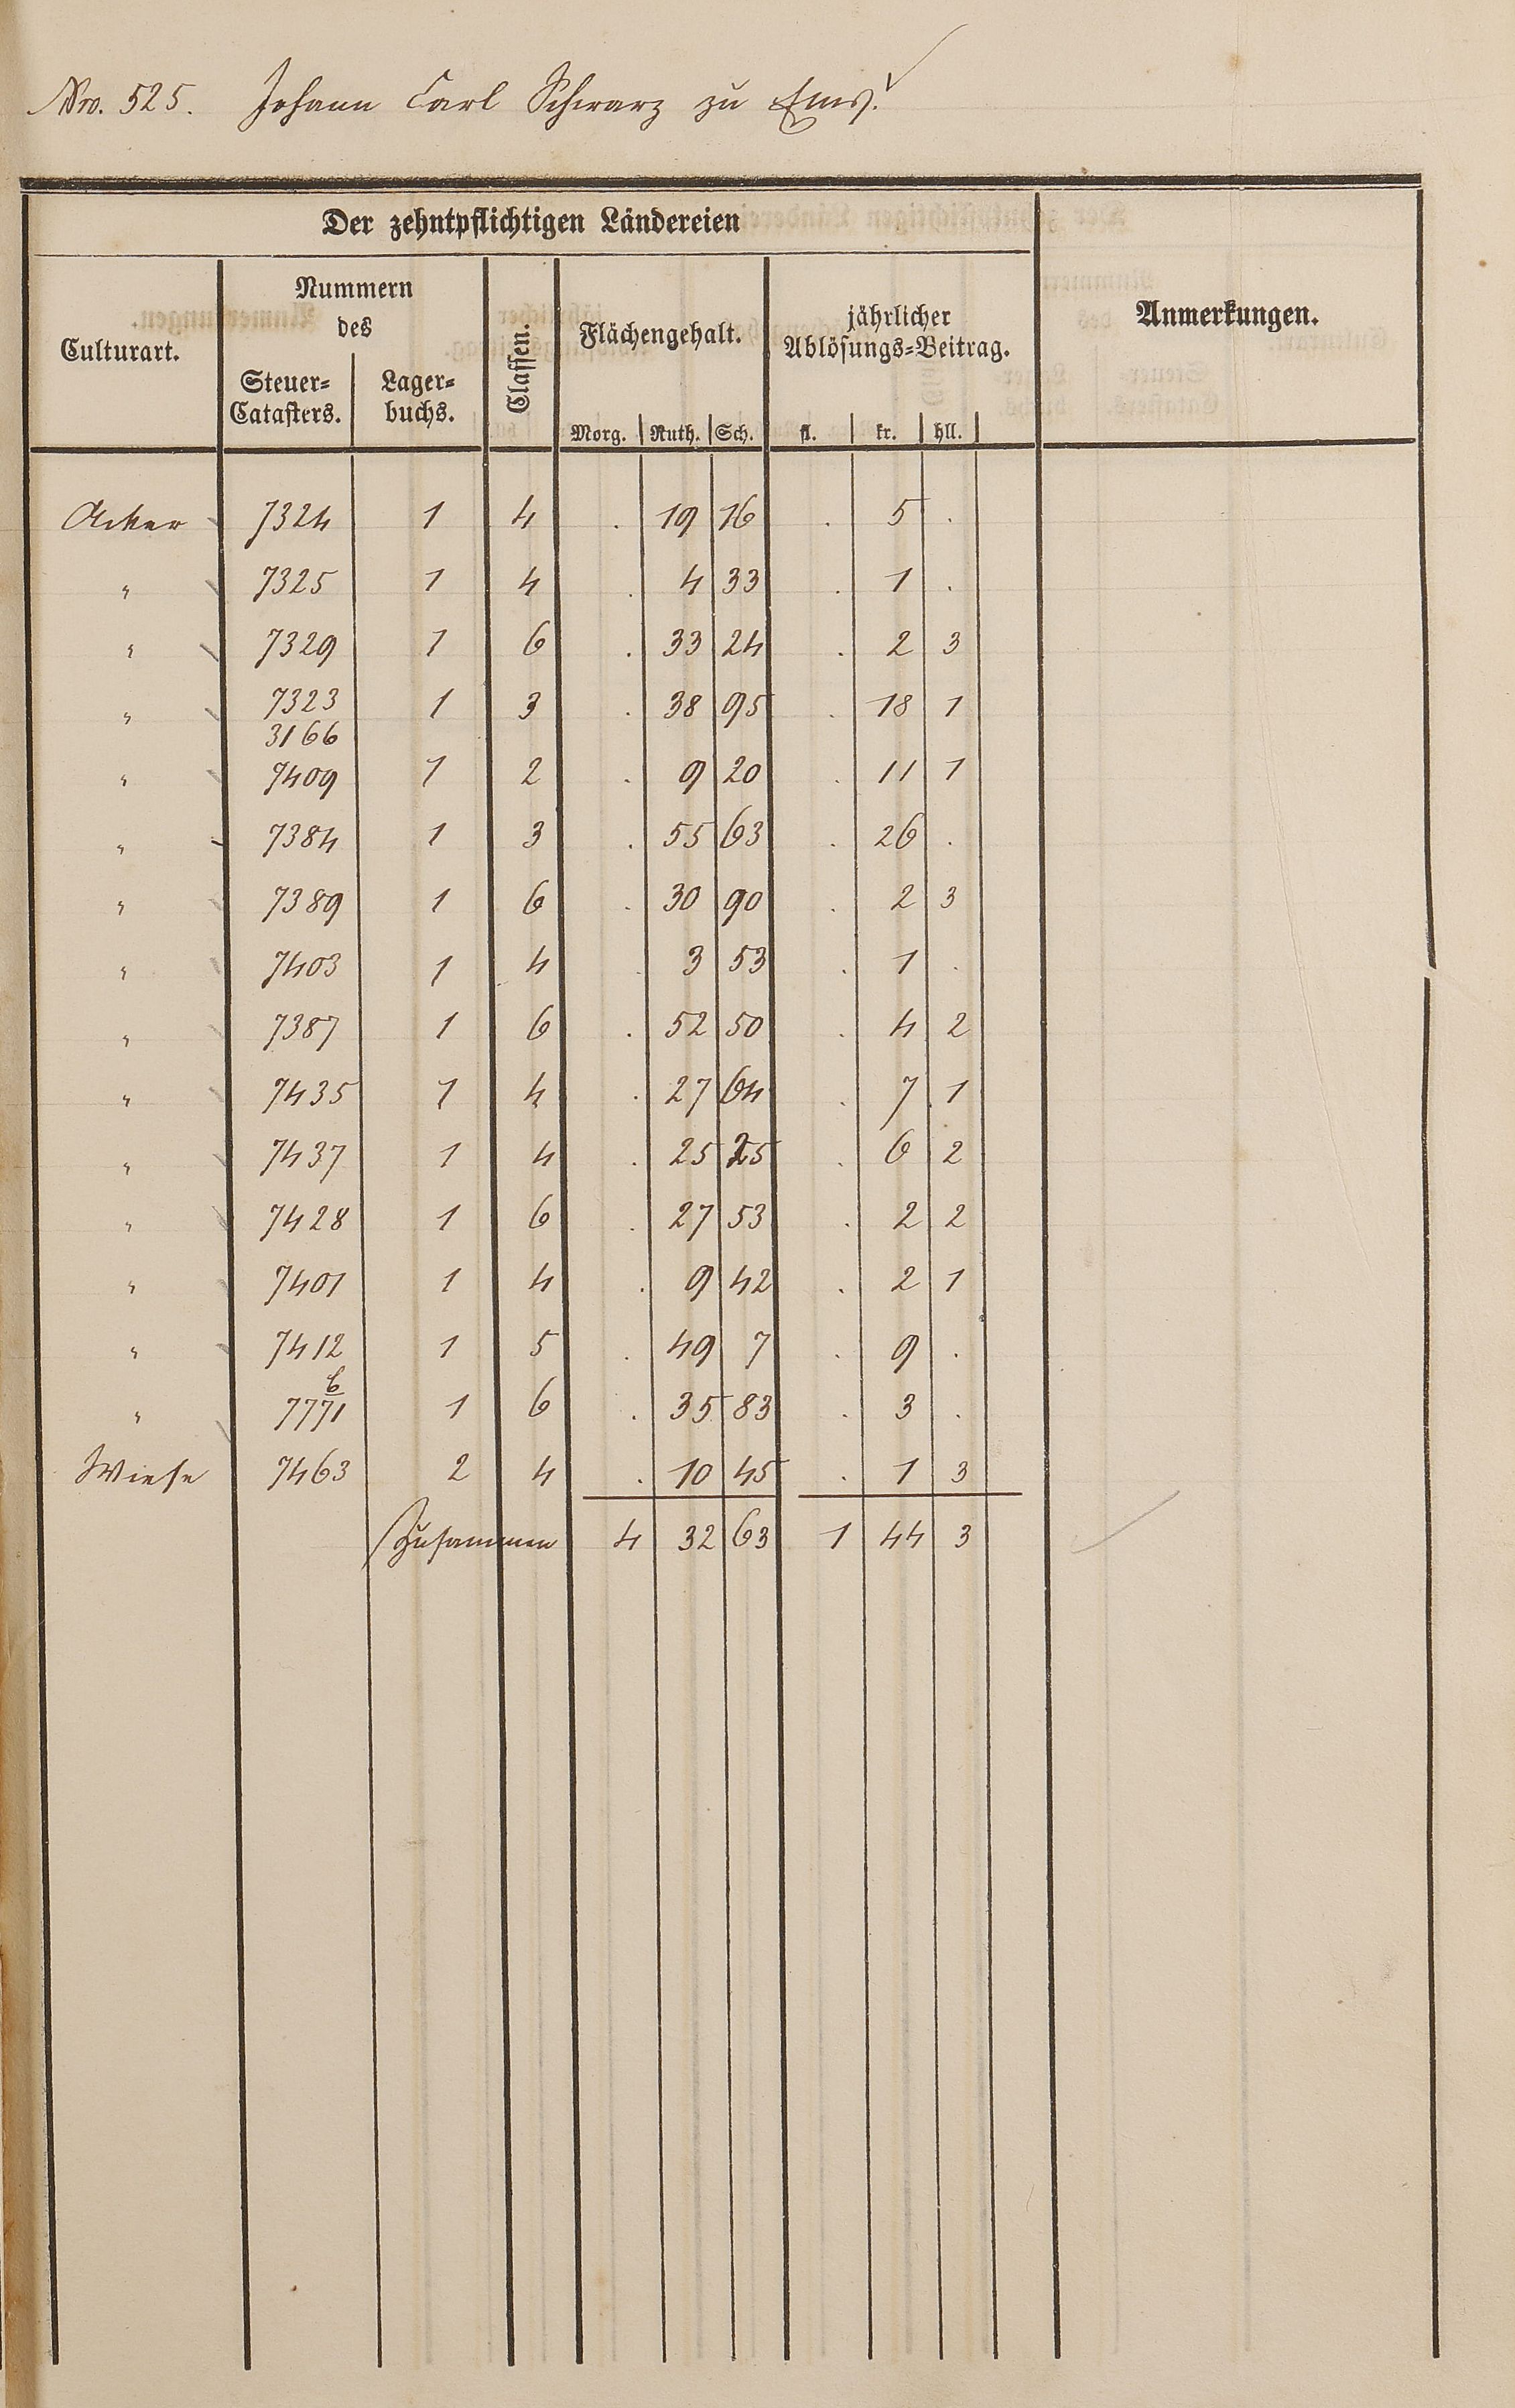 Nro. 525. Johann Carl Schwarz zu Ems.
Der zehntpflichtigen Ländereien
Culturart. Nummern des Steuer-Catasters. Lagerbuchs. Classen. Flächengehalt. Morg. Ruth. Sch. jährlicher Ablösungs-Beitrag. fl. kr. hll. Anmerkungen.
Acker 7324 1 4 . 19 16 . 5 .
" 7325 1 4 . 4 33 . 1 .
" 7329 1 6 . 33 24 . 2 3
" 7323 1 3 . 38 95 . 18 1
3166
" 7409 1 2 . 9 20 . 11 1
" 7384 1 3 . 55 63 . 26 .
" 7389 1 6 . 30 90 . 2 3
" 7403 1 4 . 3 53 . 1 .
" 7387 1 6 . 52 50 . 4 2
" 7435 1 4 . 27 64 . 7 1
" 7437 1 4 . 25 25 . 6 2
" 7428 1 6 . 27 53 . 2 2
" 7401 1 4 . 9 42 . 2 1
" 7412 1 5 . 49 7 . 9 .
b
" 7771 1 6 . 35 83 . 3 .
Wiese 7463 2 4 . 10 45 . 1 3
Zusammen 4 32 63 1 44 3